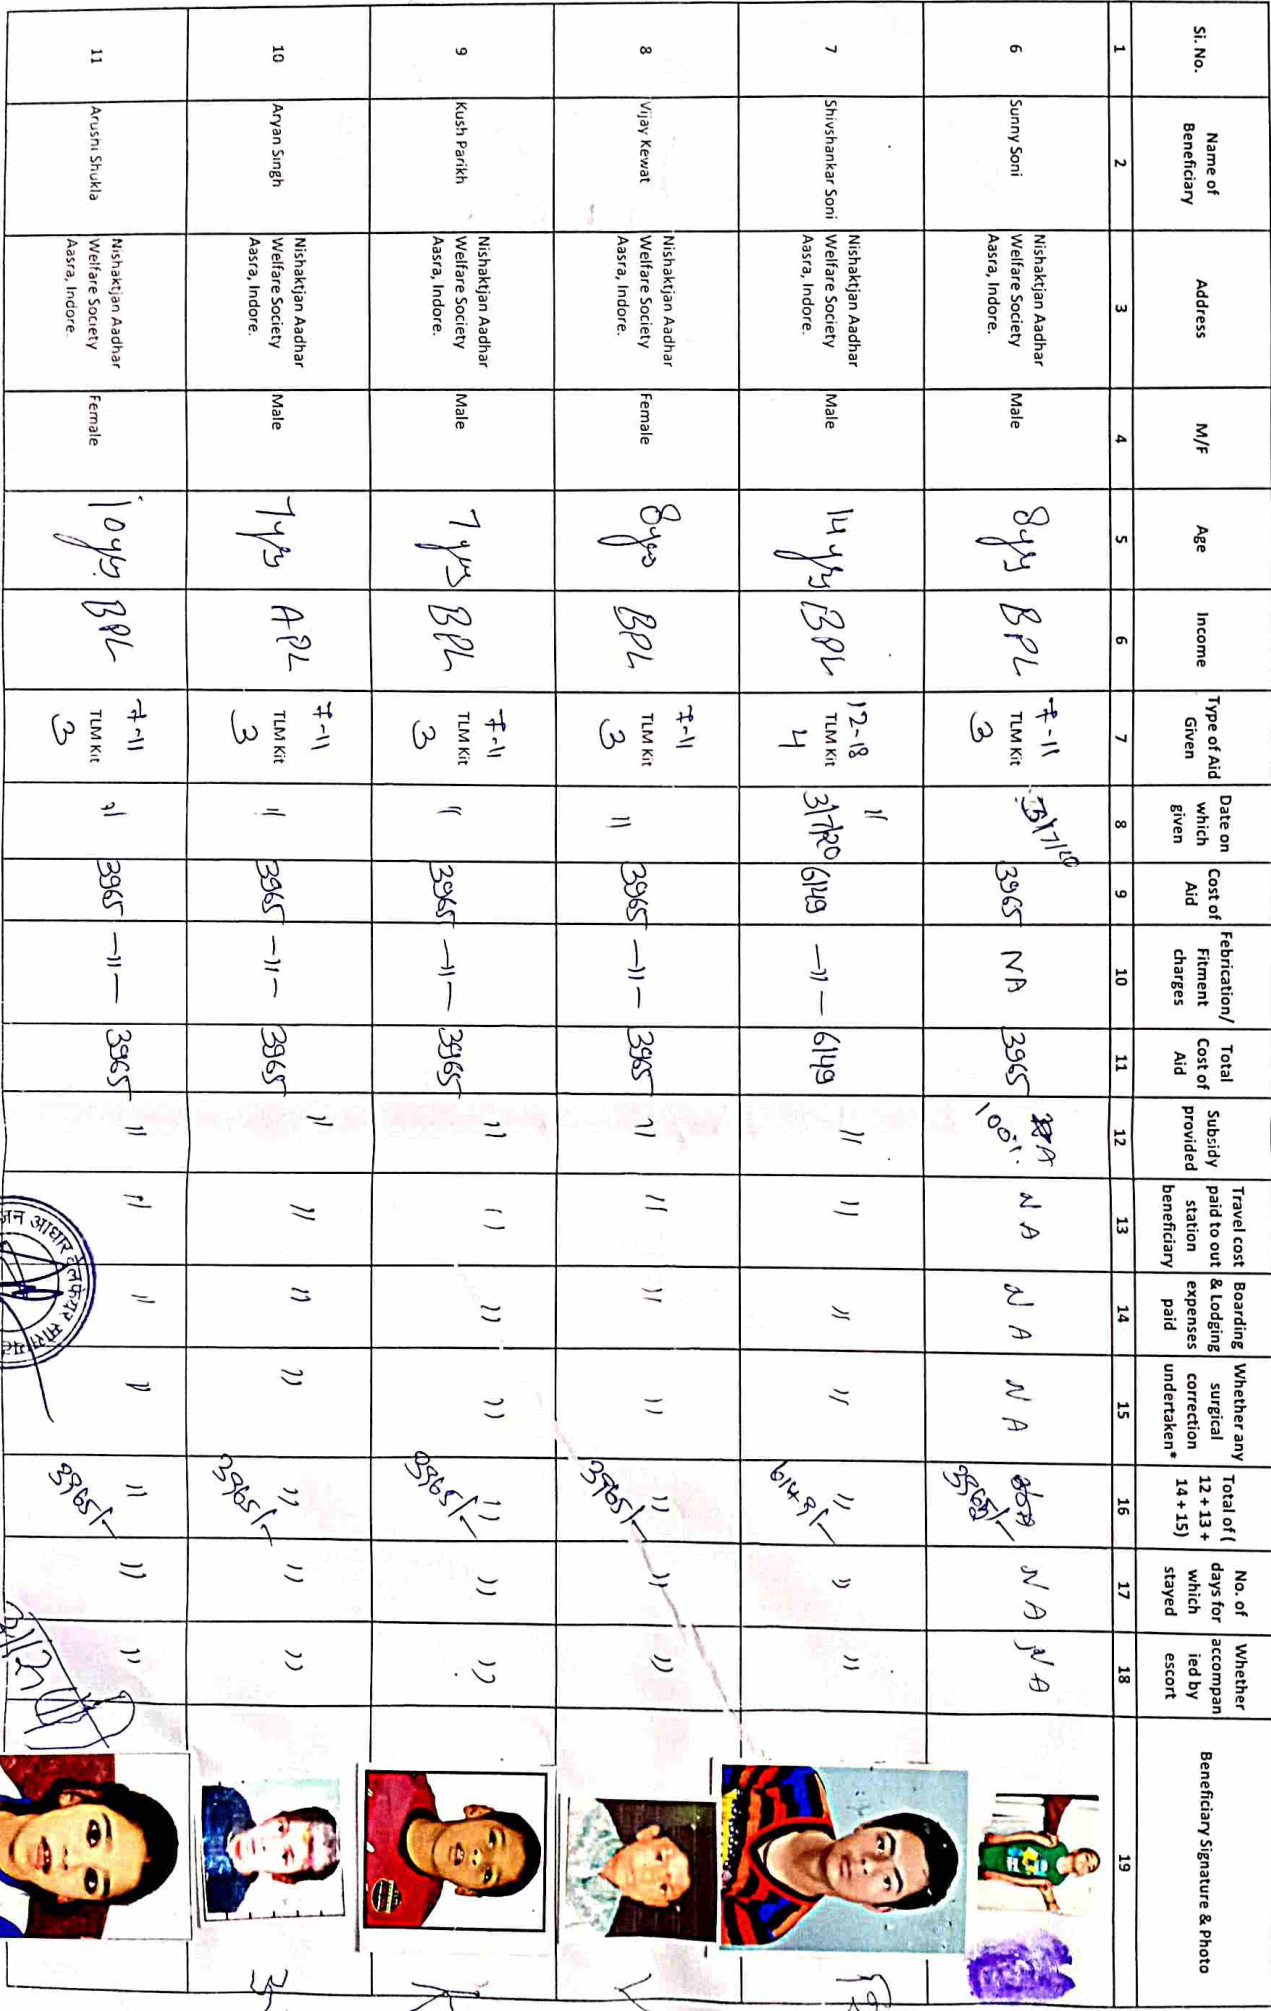 Si. No. Name of Beneficiary Address M/F Age Income Type of Aid Given Date on which given Cost of Aid Febrication/ Fitment charges Total Cost of Aid Subsidy provided Travel cost paid to out station beneficiary Boarding & Lodging expenses paid Whether any surgical correction undertaken* Total of ( 12 + 13 + 14 + 15) No. of days for which stayed Whether accompan ied by escort Beneficiary Signature & Photo
1 2 3 4 5 6 7 8 9 10 11 12 13 14 15 16 17 18 19
6 Sunny Soni Nishaktjan Aadhar Welfare Society Aasra, Indore. Male 8yrs BPL 7-11 TLM Kit 3 3965 NA 3965 100%. NA NA NA 3965/- NA NA
7 Shivshankar Soni Nishaktjan Aadhar Welfare Society Aasra, Indore. Male 14 yrs BPL 12-18 TLM Kit 4 " 3/7/20 6149 -"- 6149 " " " " " 6149/- " "
8 Vijay Kewat Nishaktjan Aadhar Welfare Society Aasra, Indore. Female 8yrs BPL 7-11 TLM Kit 3 " 3965 -"- 3965 " " " " " 3965/- " "
9 Kush Parikh Nishaktjan Aadhar Welfare Society Aasra, Indore. Male 7 yrs BPL 7-11 TLM Kit 3 " 3965 -"- 3965 " " " " " 3965/- " "
10 Aryan Singh Nishaktjan Aadhar Welfare Society Aasra, Indore. Male 7yrs APL 7-11 TLM Kit 3 " 3965 -"- 3965 " " " " " 3965/- " "
11 Arushi Shukla Nishaktjan Aadhar Welfare Society Aasra, Indore. Female 10yrs. BPL 7-11 TLM Kit 3 " 3965 -"- 3965 " " " " " 3965/- " "
जन आधार वेलफेयर